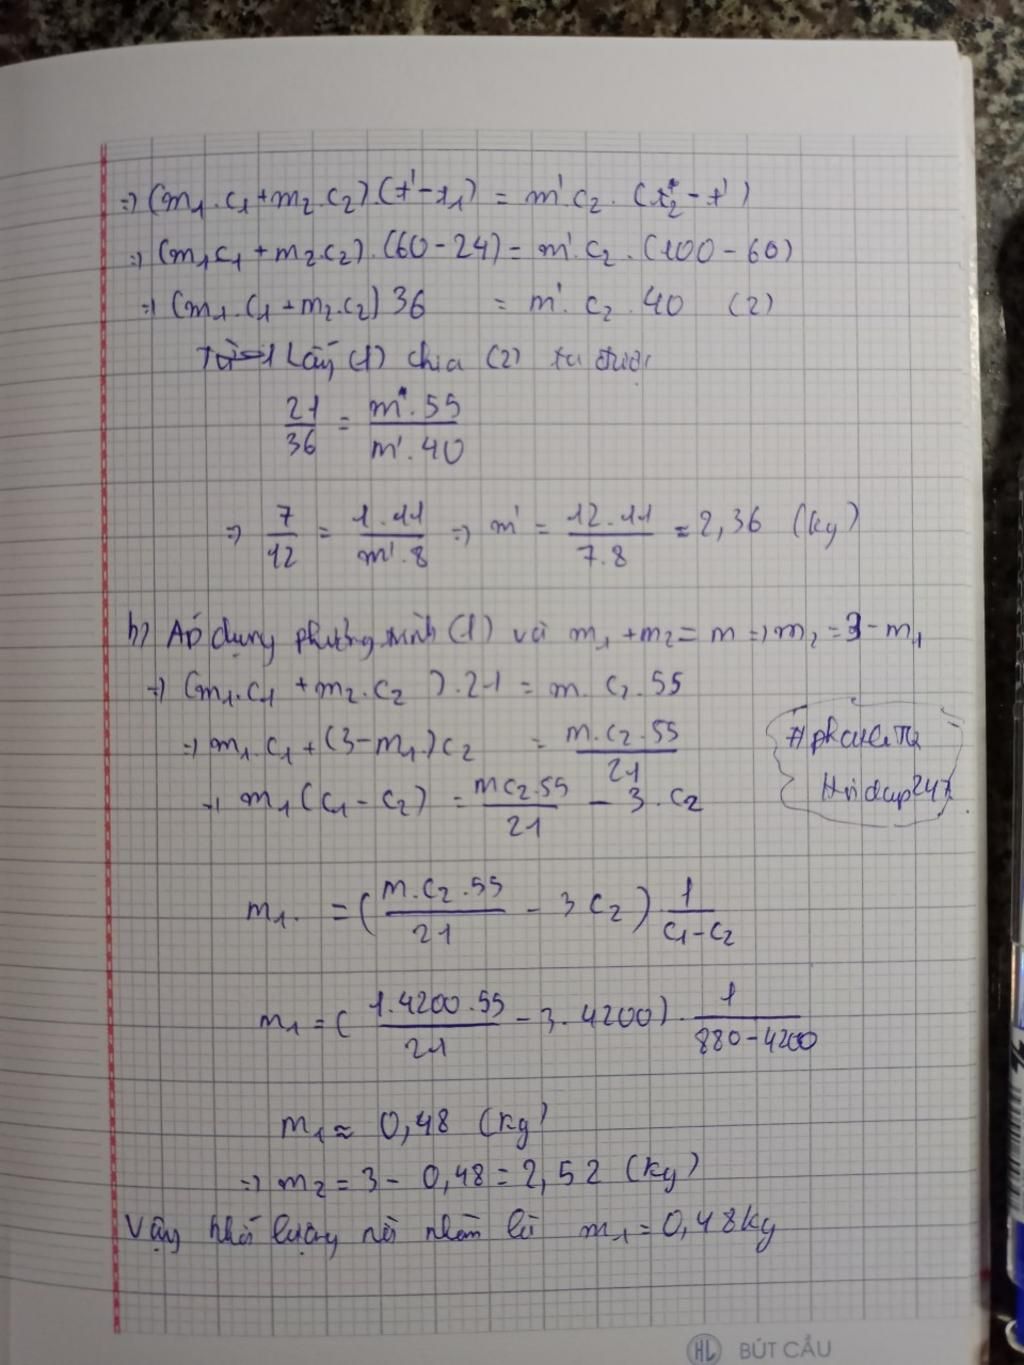 => (m₁.c₁+m₂.c₂).(t'-t₁) = m'.c₂.(t₂-t')
=> (m₁c₁+m₂.c₂).(60-24) = m'.c₂.(100-60)
=> (m₁.c₁+m₂.c₂)36 = m'.c₂.40 (2)
Lấy (1) chia (2) ta được
21/36 = m.55/m'.40
=> 7/12 = 1.11/m'.8 => m' = 12.11/7.8 = 2,36 (kg)
b) Áp dụng phương trình (1) với m₁+m₂=m => m₂=3-m₁
=> (m₁.c₁+m₂.c₂).21 = m.c₂.55
=> m₁.c₁+(3-m₁)c₂ = m.c₂.55/21
=> m₁(c₁-c₂) = mc₂.55/21 - 3.c₂
Hỏi đáp 247
m₁. = (m.c₂.55/21 - 3c₂).1/c₁-c₂
m₁ = (1.4200.55/21 - 3.4200).1/880-4200
m₁ ≈ 0,48 (kg)
=> m₂ = 3 - 0,48 = 2,52 (kg)
Vậy khối lượng nồi nhôm là m₁ = 0,48kg
HL BÚT CẦU